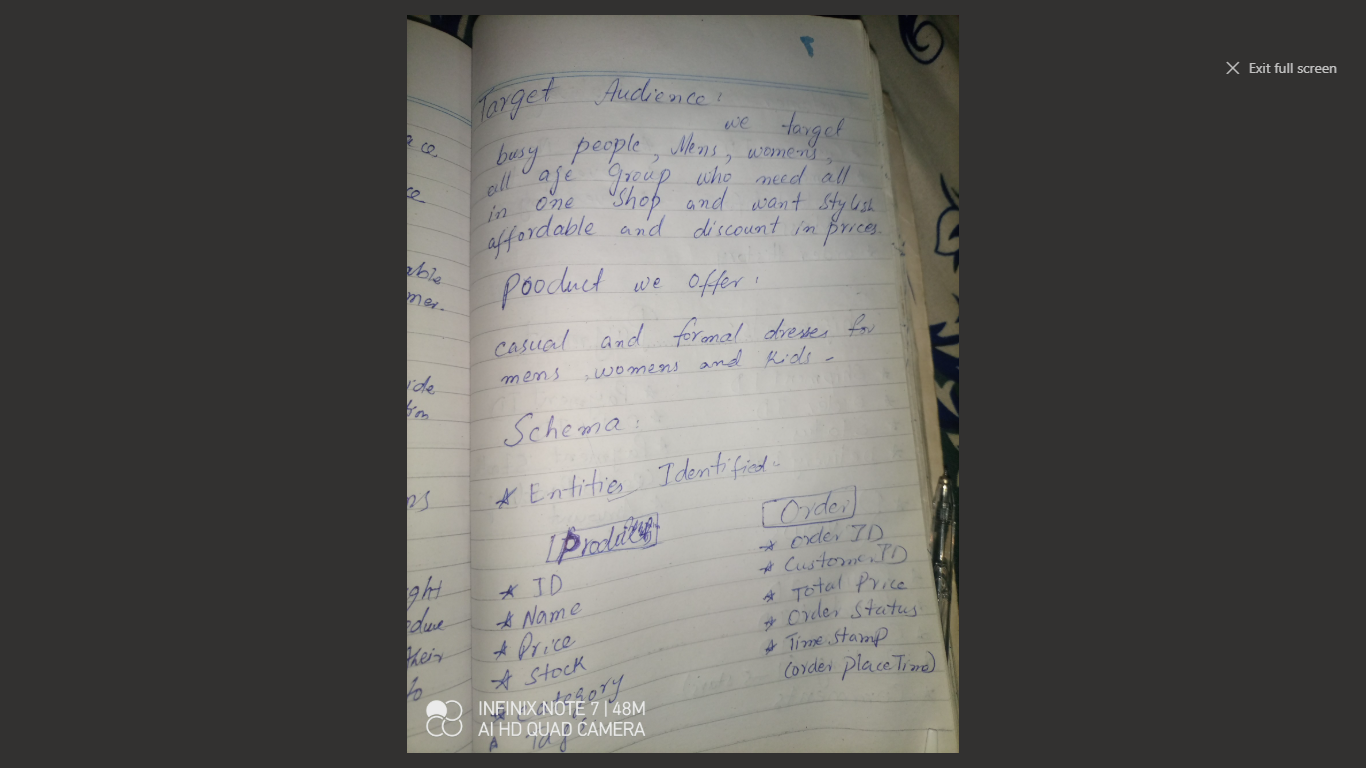 Exit full screen
Target Audience:
we target
busy people, Mens, womens,
all age Group who need all
in one shop and want stylish
affordable and discount in prices.
Pooduct we offer:
casual and formal dresses for
mens, womens and kids -
Schema:
* Entities Identified-
Product
* ID
* Name
* Price
* Stock
* Category
* Tag
Order
* Order ID
* Customer ID
* Total Price
* Order Status
* Time stamp
(order place Time)
able
mer.
ide
ght
their
INFINIX NOTE 7 | 48M
AI HD QUAD CAMERA